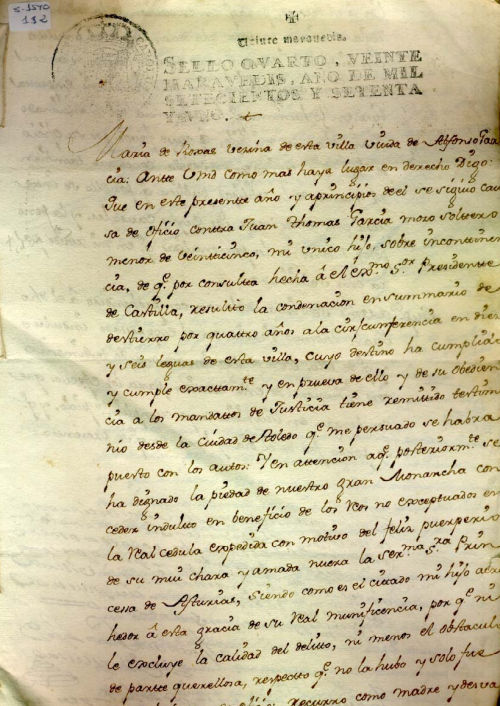 S-1570
132
Veinte maravedis.
SELLO QVARTO, VEINTE
MARAVEDIS, AÑO DE MIL
SETECIENTOS Y SETENTA
Y VNO.
Maria de Roxas vecina de esta villa viuda de Alfonso Gar
cia: Antte Vmd como mas haya lugar en derecho Digo:
Que en este presentte año y aprincipios de el se siguio cau
sa de oficio conttra Juan Thomas Garcia mozo solttero
menor de Veinticinco, mi unico hijo, sobre inconttinen
cia, de q.e por consultta hecha á el Ex.mo S.or Presidentte
de Castilla, resultto la condenacion en summario de
desttierro por quattro años a la circumferencia en diez
y seis leguas de esta villa, cuyo desttino ha cumplido
y cumple exacttam.te y en prueva de ello y de su obedien
cia a los mandattos de Justicia tiene remittido testtimo
nio desde la Ciudad de Ttoledo q.e me persuado se habra
puestto con los auttos: Y en attencion a q.e postteriorm.te se
ha dignado la piedad de nuesttro gran Monarcha con
ceder indultto en beneficio de los Reos no excepttuados en
la Real cedula expedida con mottivo del feliz puerperio
de su mui chara y amada nuera la Ser.ma S.ra Prin
cessa de Astturias, siendo como es el cittado mi hijo acre
hedor á esta gracia de su Real munificencia, por q.e ni
le excluye la calidad del delitto, ni menos el obsttaculo
de partte querellosa, respectto q.e no la hubo y solo fue
recurro como madre y